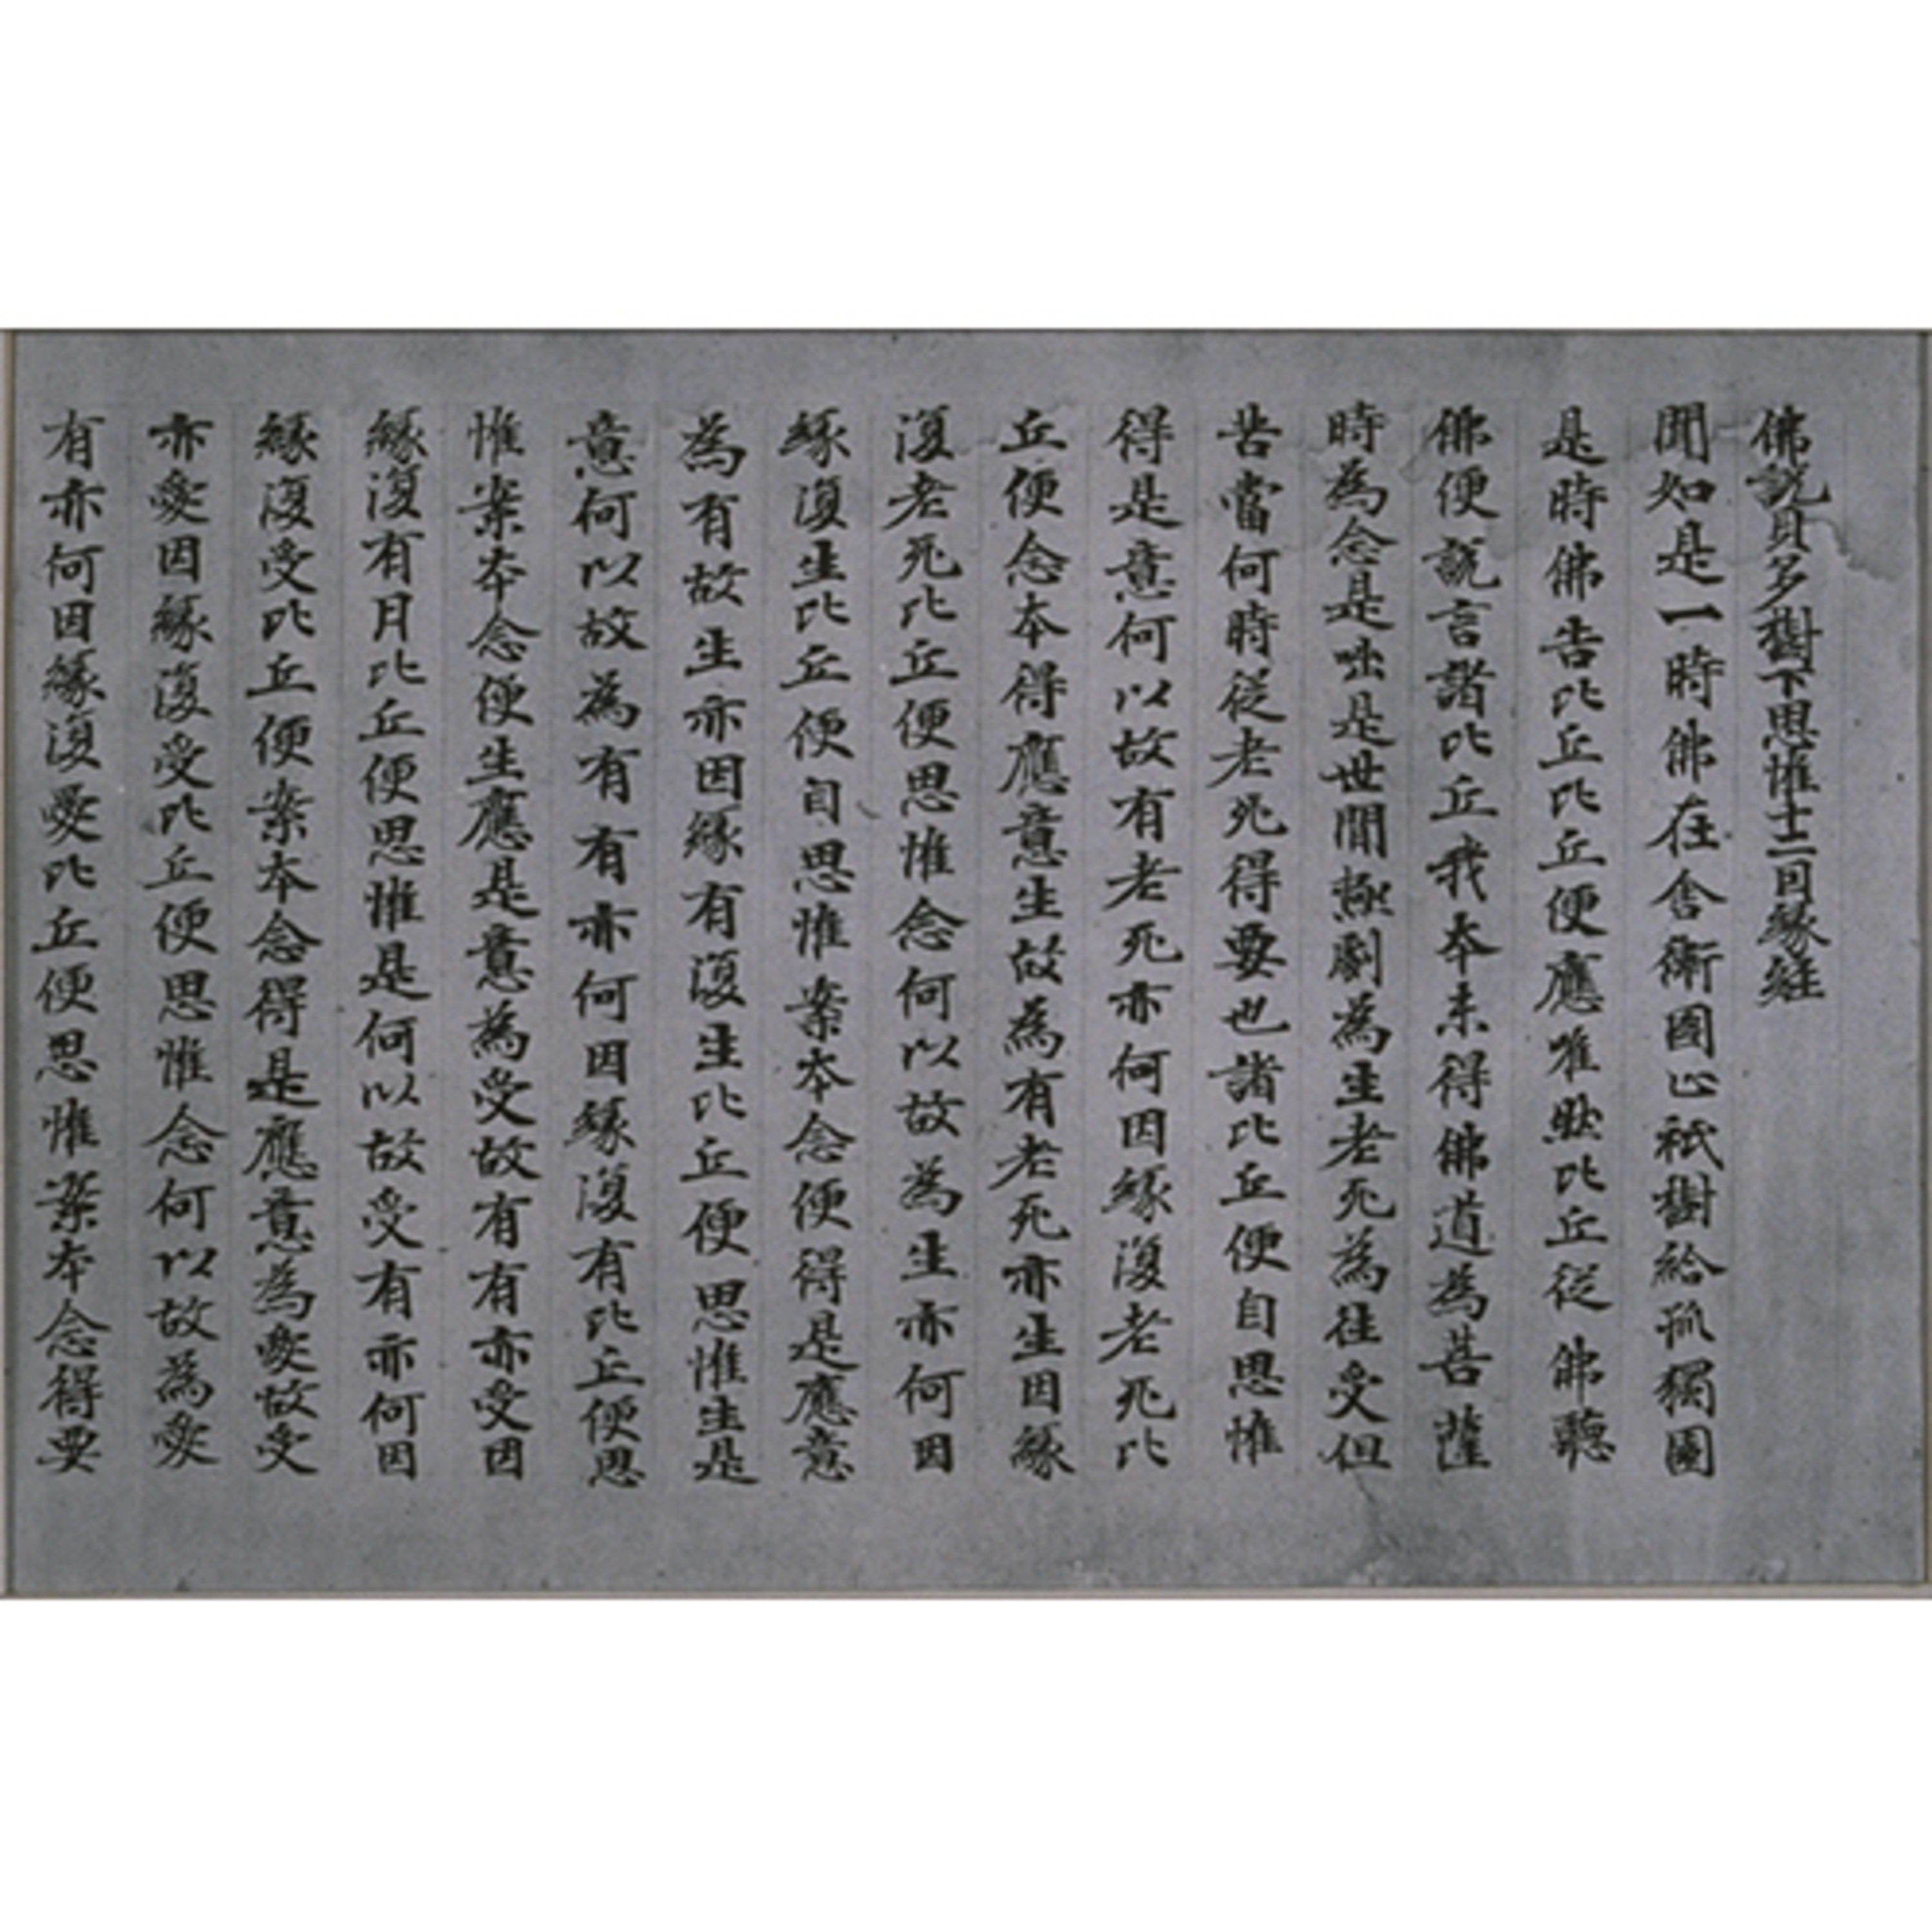 佛說貝多樹下思惟十二因緣經
聞如是一時佛在舍衛國止祇樹給孤獨園
是時佛告比丘比丘便應唯然比丘從佛聽
佛便說言諸比丘我本未得佛道為菩薩
時為念是咄是世間極劇為生老死為往受但
苦當何時從老死得要也諸比丘便自思惟
得是意何以故有老死亦何因緣復老死比
丘便念本得應意生故為有老死亦生因緣
復老死比丘便思惟念何以故為生亦何因
緣復生比丘便自思惟案本念便得是應意
為有故生亦因緣有復生比丘便思惟生是
意何以故為有有亦何因緣復有比丘便思
惟案本念便生應是意為受故有有亦受因
緣復有月比丘便思惟是何以故受有亦何因
緣復受比丘便案本念得是應意為愛故受
亦愛因緣復受比丘便思惟念何以故為愛
有亦何因緣復愛比丘便思惟案本念得要